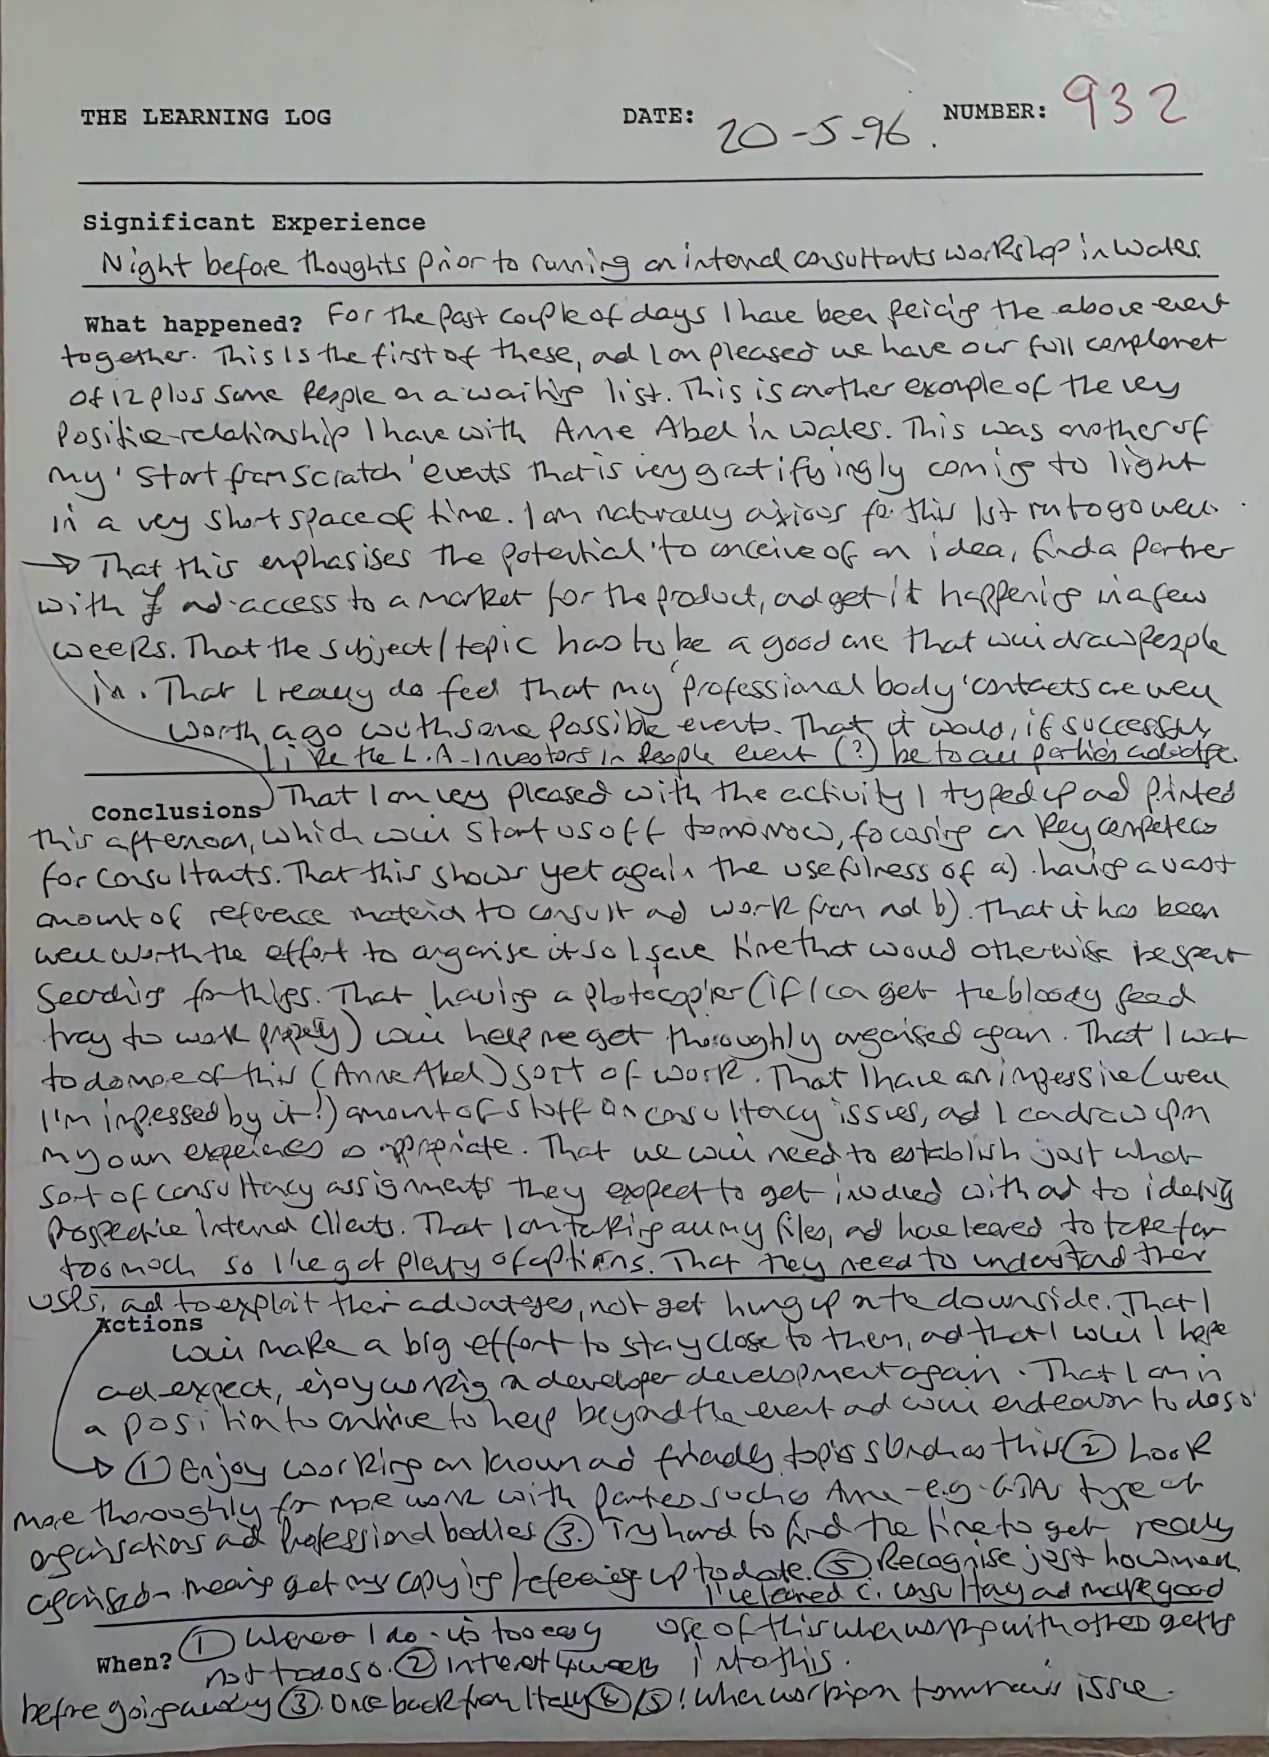 THE LEARNING LOG DATE: 20-5-96. NUMBER: 932
Significant Experience
Night before thoughts prior to running an internal consultants workshop in Wales.
What happened? For the past couple of days I have been piecing the above event
together. This is the first of these, and I am pleased we have our full complement
of 12 plus some people on a waiting list. This is another example of the very
positive relationship I have with Anne Abel in Wales. This was another of
my 'start from scratch' events that is very gratifyingly coming to light
in a very short space of time. I am naturally anxious for this 1st run to go well.
→ That this emphasises the potential to conceive of an idea, find a partner
with £ and access to a market for the product, and get it happening in a few
weeks. That the subject/topic has to be a good one that will draw people
in. That I really do feel that my 'professional body' contacts are well
worth a go with some possible events. That it would, if successful
like the L.A. Investors in People event (?) be to all parties advantage.
Conclusions That I am very pleased with the activity I typed up and printed
this afternoon, which will start us off tomorrow, focusing on key competences
for consultants. That this shows yet again the usefulness of a) having a vast
amount of reference material to consult and work from and b). That it has been
well worth the effort to organise it so I save time that would otherwise be spent
searching for things. That having a photocopier (if I can get the bloody feed
tray to work properly) will help me get thoroughly organised again. That I want
to do more of this (Anne Abel) sort of work. That I have an impressive (well
I'm impressed by it!) amount of stuff on consultancy issues, and I can draw upon
my own experiences as appropriate. That we will need to establish just what
sort of consultancy assignments they expect to get involved with and to identify
prospective Internal Clients. That I am taking all my files, and have learned to take far
too much so I've got plenty of options. That they need to understand their
USPs, and to exploit their advantages, not get hung up on the downside. That I
Actions
will make a big effort to stay close to them, and that I will I hope
and expect, enjoy working in a developer development again. That I am in
a position to continue to help beyond the event and will endeavour to do so.
→ ① Enjoy working on known and friendly topics such as this ② Look
more thoroughly for more work with parties such as Anne - e.g. type of
organisations and Professional bodies ③. Try hard to find the time to get really
organised - meaning get my copying/referencing up to date. ⑤ Recognise just how much
I've learned c. consultancy and make good
use of this when working with others getting
into this.
When? ① Whenever I do - it's too easy
not to do so. ② In the next 4 weeks
before going away ③. Once back from Italy ④/⑤! When working on tomorrow's issue.